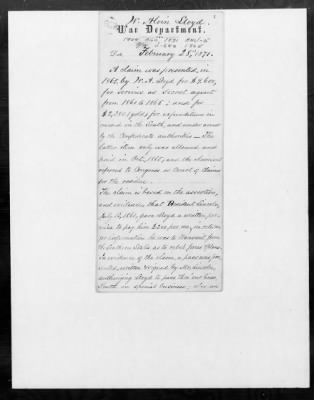 W. Alvin Lloyd.
War Department.
February 28, 1871.
A claim was presented, in
1865, by W. A. Lloyd for $9,600,
for services as secret agent
from 1861 to 1865; and for
$2,380 (gold) for expenditures in-
curred in the South, and under arrest
by the Confederate authorities — The
latter item only was allowed, and
paid in Oct., 1865, and the claimant
referred to Congress or Court of Claims
for the residue.
The claim is based on the assertion,
and evidence, that President Lincoln,
July 13, 1861, gave Lloyd a written pro-
mise to pay him $200 per mo., in return
for information he was to transmit from
the Southern States as to rebel forces &
In evidence of the claim, a pass was pre-
sented, written & signed by Mr. Lincoln,
authorizing Lloyd to pass thro' our lines
South on special business; also an